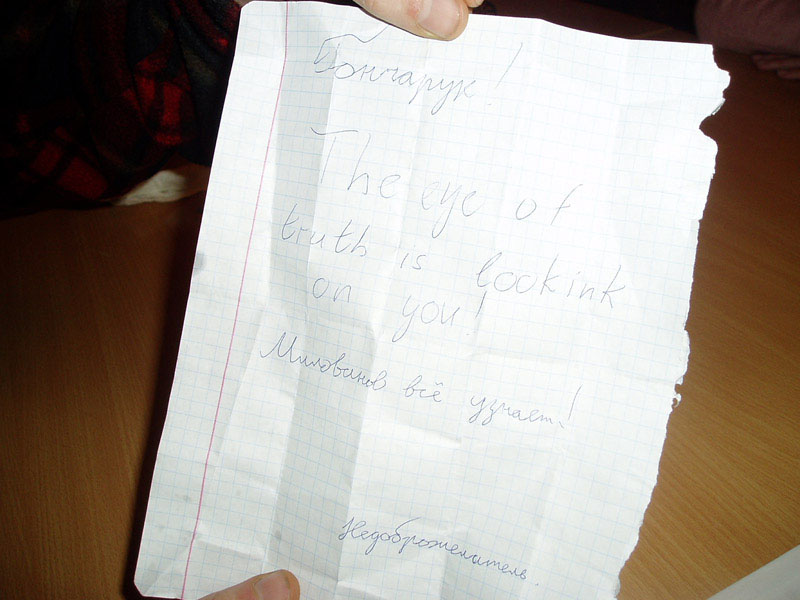 Гончарук!
The eye of
truth is lookink
on you!
Милованов всё узнает!
Недоброжелатель.